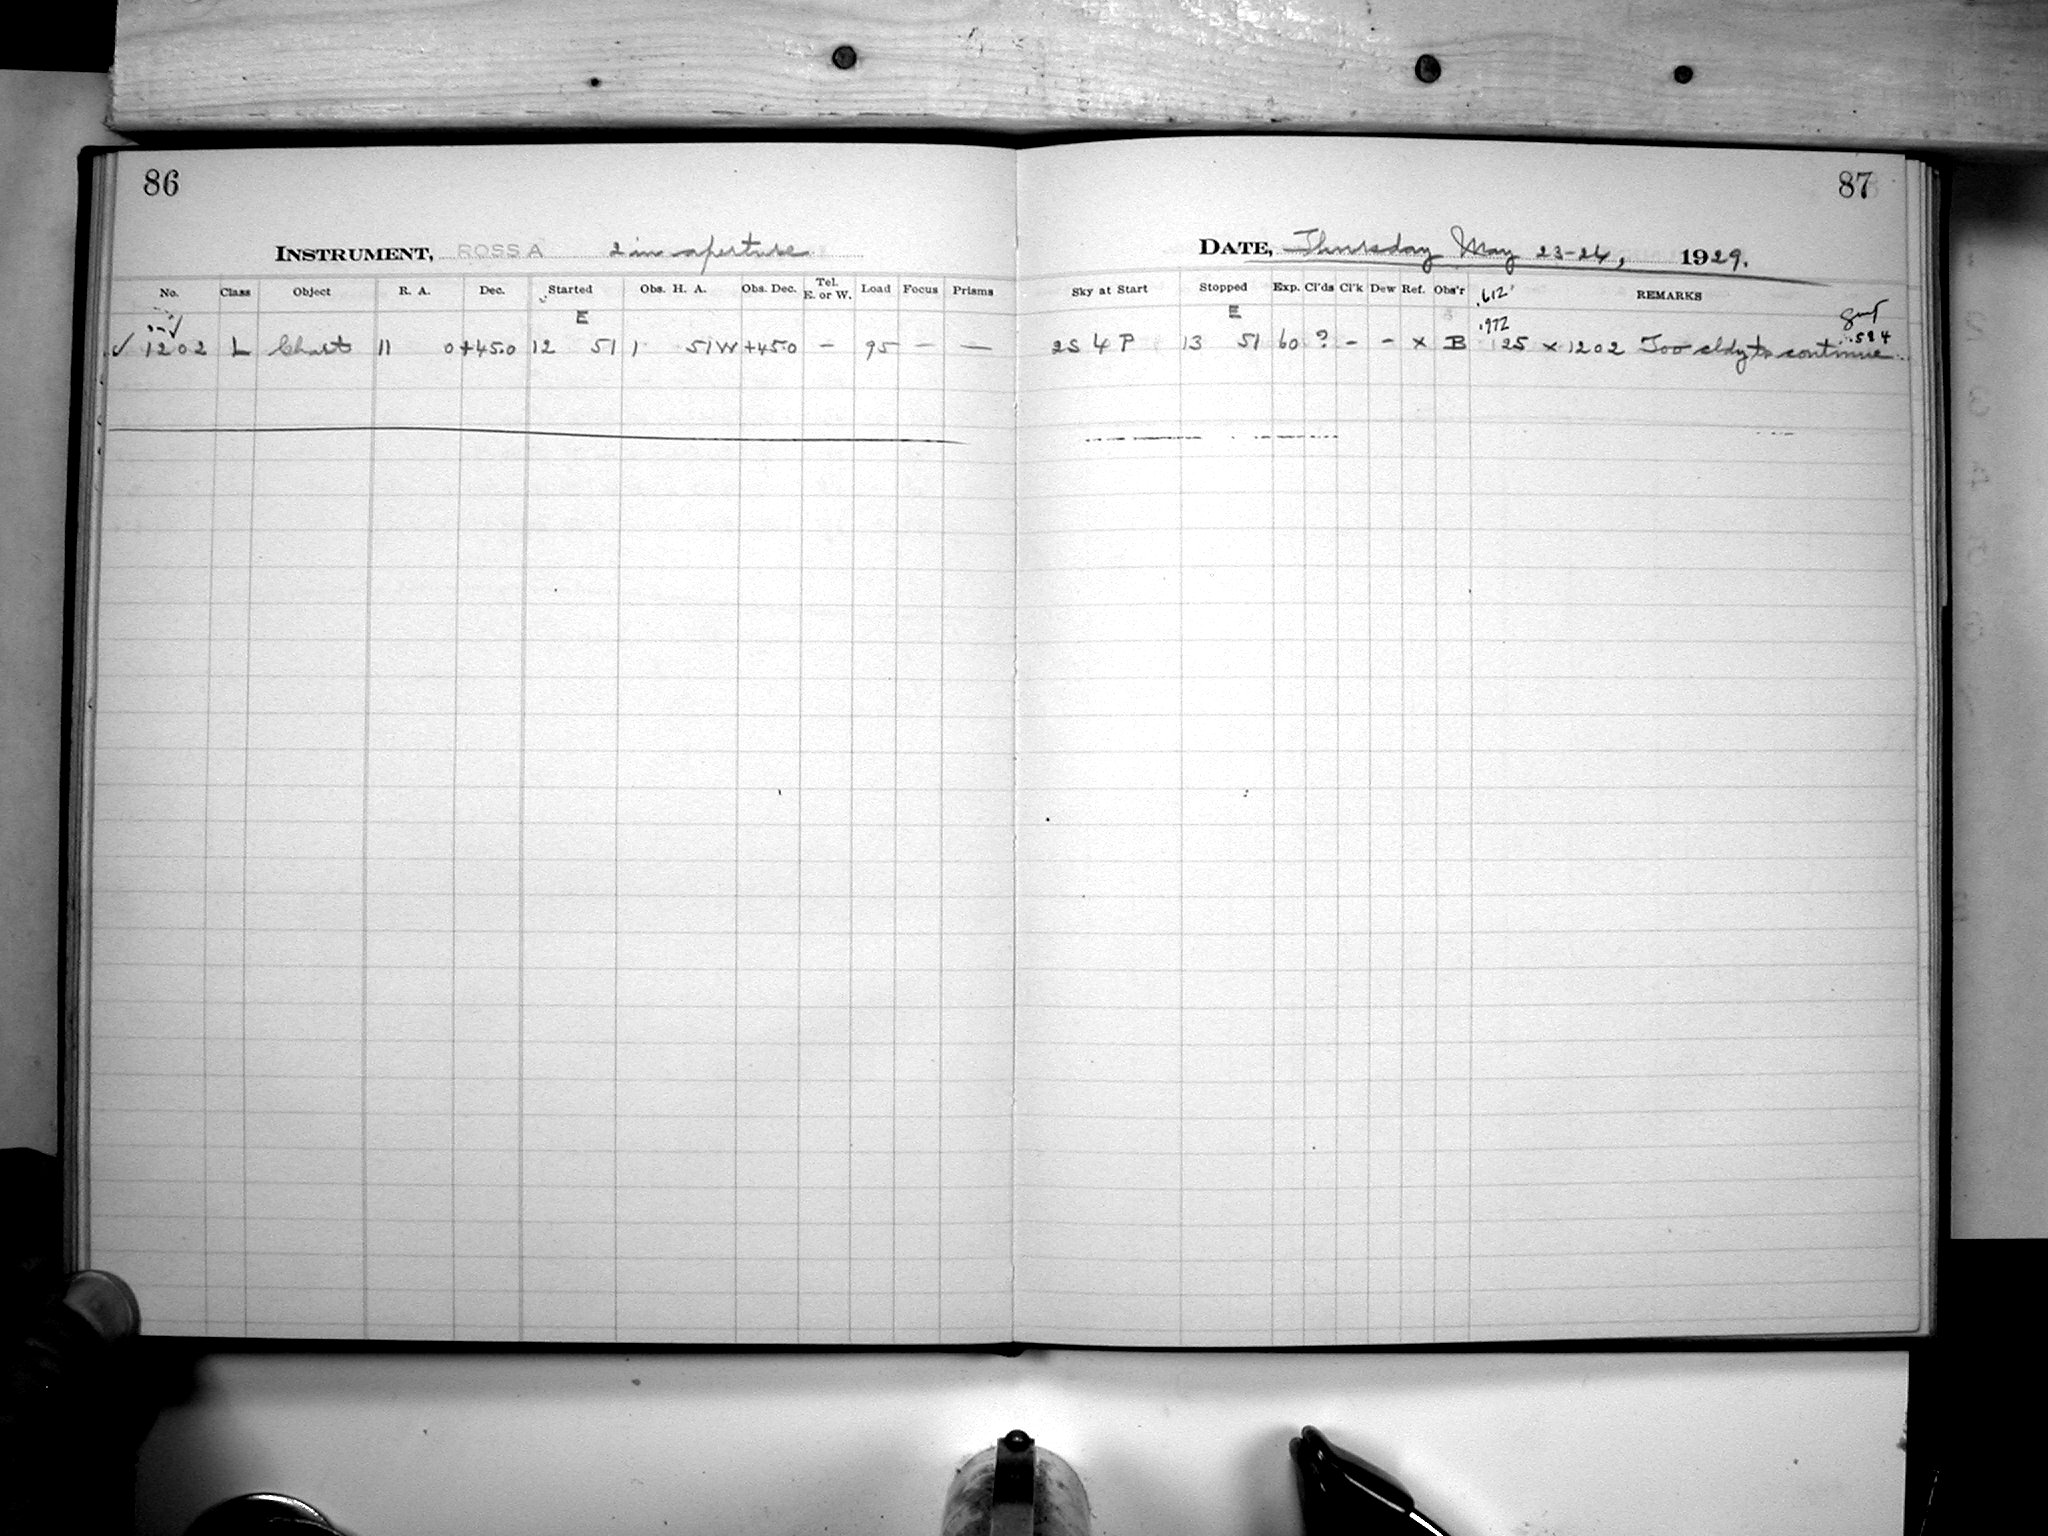 86
INSTRUMENT, ROSS A 2 in aperture
No. Class Object R. A. Dec. Started Obs. H. A. Obs. Dec. Tel. E. or W. Load Focus Prisms
E
✓ 1202 L Chart 11 0 +45.0 12 51 1 51 W +45.0 – 95 – —
87
DATE, Thursday May 23-24, 1929.
Sky at Start Stopped Exp. Cl'ds Cl'k Dew Ref. Obs'r .612 REMARKS
E .972
2S 4 P 13 51 60 ? – – x B 25 x 1202 Too cldy to continue .584